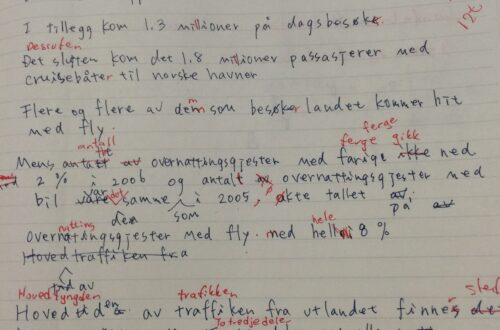 I tillegg kom 1.3 millioner på dagsbesøk.
Dessuten
Det slutten kom det 1.8 millioner passasjerer med
cruisebåter til norske havner
Flere og flere av dem som besøker landet kommer hit
med fly.
antall ferge
ferge gikk
Mens antatt av overnattingsgjester med farige ikke ned
2 % i 2006 og antalt overnattingsgjester med
var det
bil samme i 2005, økte tallet av
den som på
natting hele
Overnattingsgjester med fly med 8 %
Hovedtraffiken fra
tid av
Hovedtyngden trafikken sted
Hovedtiden av traffiken fra utlandet finnes
To tredjedeler
12t